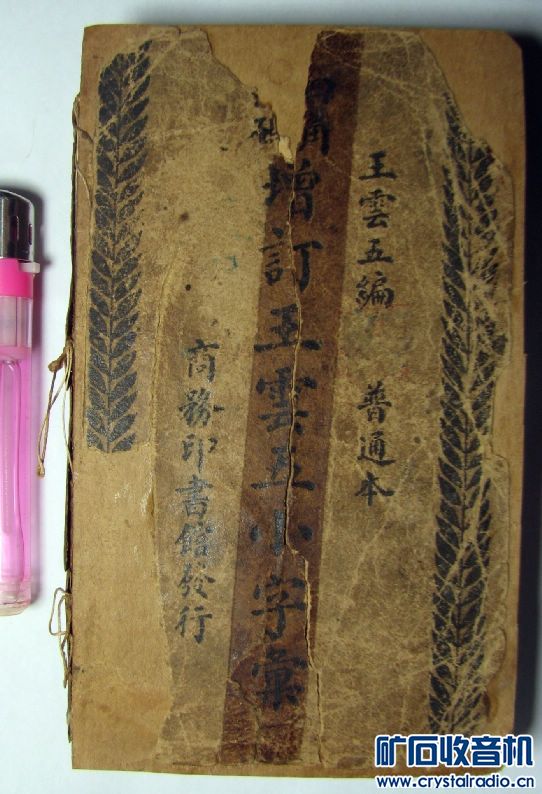 王雲五編 普通本
四角
號碼
增訂王雲五小字彙
商務印書館發行
矿石收音机
www.crystalradio.cn